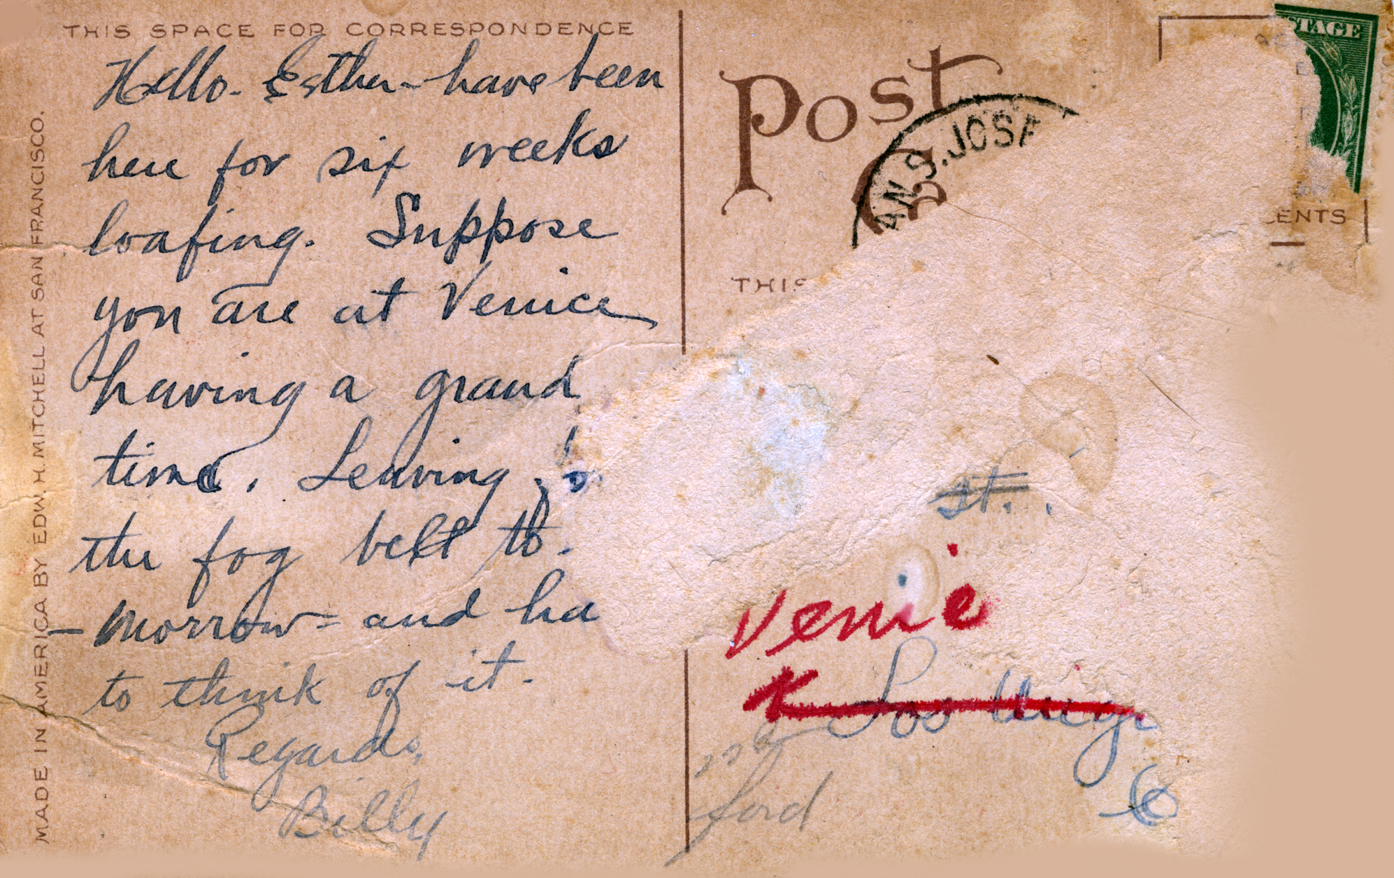 THIS SPACE FOR CORRESPONDENCE
Hello. Esther - have been
here for six weeks
loafing. Suppose
you are at Venice
having a grand
time. Leaving
the fog belt to.
- morrow = and ha
to think of it.
Regards,
Billy
MADE IN AMERICA BY EDW. H. MITCHELL AT SAN FRANCISCO.
Post
C
AN S. JOSE
STAGE
CENTS
THIS
St.
Venic
Los Ange
ford